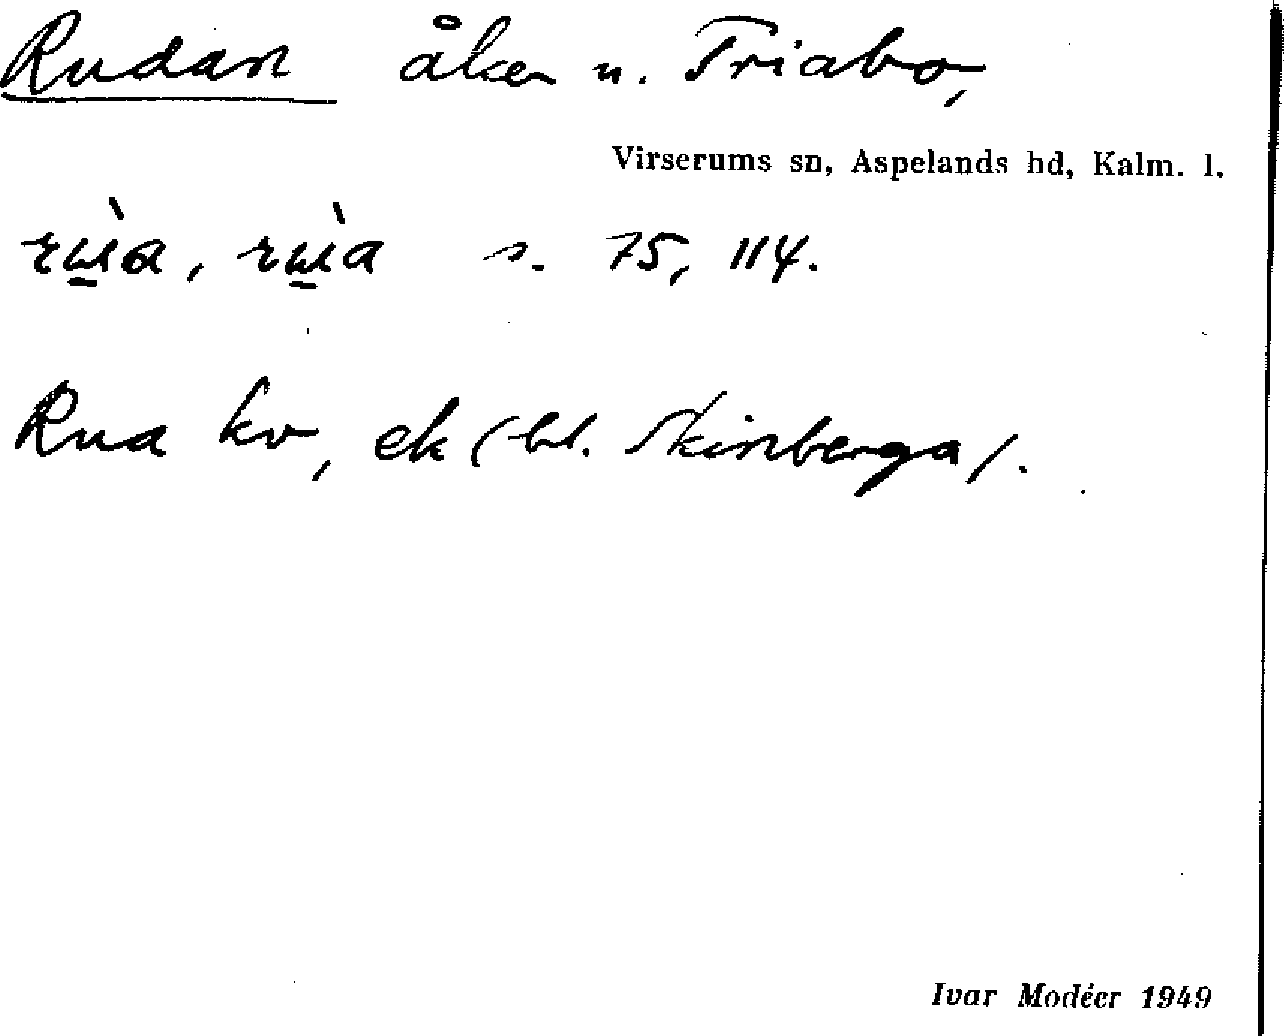 Rudan åker u. Triabo,
Virserums sn, Aspelands hd, Kalm. l.
rɯ̀a, rɯ̀a s. 75, 114.
Rua kv, ek (bl. Skinberga).
Ivar Modéer 1949